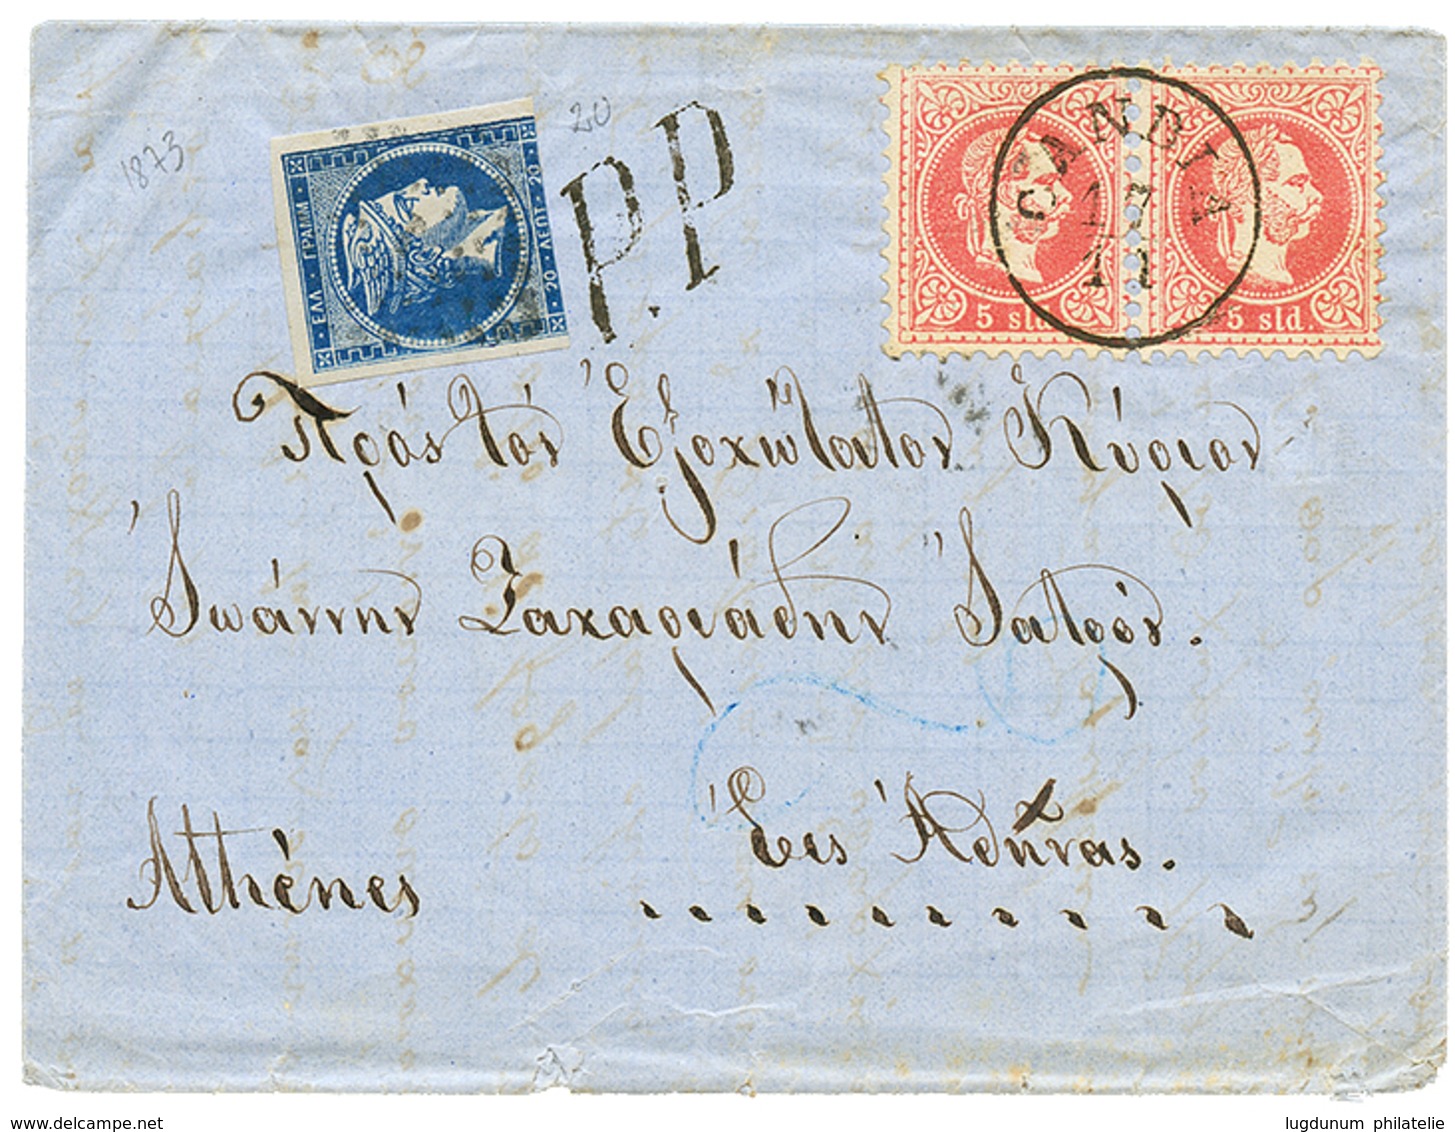 1873
20
P.P.
ΕΛΛ · ΓΡΑΜΜ
20 · ΛΕΠΤ · 20
20
CANDIA
17
11
5 sld.
5 sld.
Πρὸς τὸν Ἐξοχώτατον Κύριον
Ἰωάννην Ζαχαριάδην Ἰατρόν.
Athénes
Εἰς Ἀθήνας.
www.delcampe.net
lugdunum philatelie